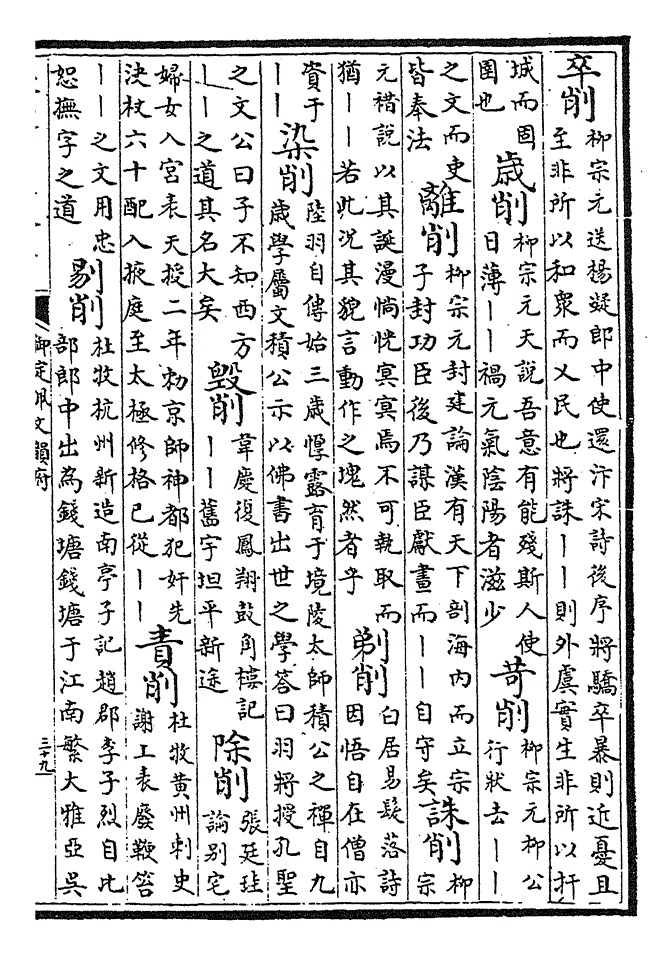 卒削
柳宗元送楊凝郎中使還汴宋詩後序將驕卒暴則近憂且
至非所以和衆而乂民也將誅丨丨則外虞實生非所以扞
城而固
圉也
歳削
柳宗元天說吾意有能殘斯人使
日薄丨丨禍元氣陰陽者滋少
苛削
柳宗元柳公
行狀去丨丨
之文而吏
皆奉法
離削
柳宗元封建論漢有天下剖海内而立宗
子封功臣後乃謀臣獻畫而丨丨自守矣
誅削
柳
宗
元䄍說以其誕漫惝怳冥冥焉不可執取而
猶丨丨若此況其貌言動作之塊然者乎
剃削
白居易髮落詩
因悟自在僧亦
資于
丨丨
染削
陸羽自傳始三歳惸露育于境陵太師積公之禪自九
歳學屬文積公示以佛書出世之學答曰羽將授孔聖
之文公曰子不知西方
丨丨之道其名大矣
毁削
韋慶復鳳翔鼓角樓記
丨丨舊宇坦平新途
除削
張廷珪
論别宅
婦女入宮表天授二年勅京師神都犯奸先
决杖六十配入掖庭至太極修格已從丨丨
責削
杜牧黄州刺史
謝工表廢鞭笞
丨丨之文用忠
恕撫字之道
剔削
杜牧杭州新造南亭子記趙郡李子烈自比
部郎中出為錢塘錢塘于江南繁大雅亞吳
御定佩文韻府
三十九